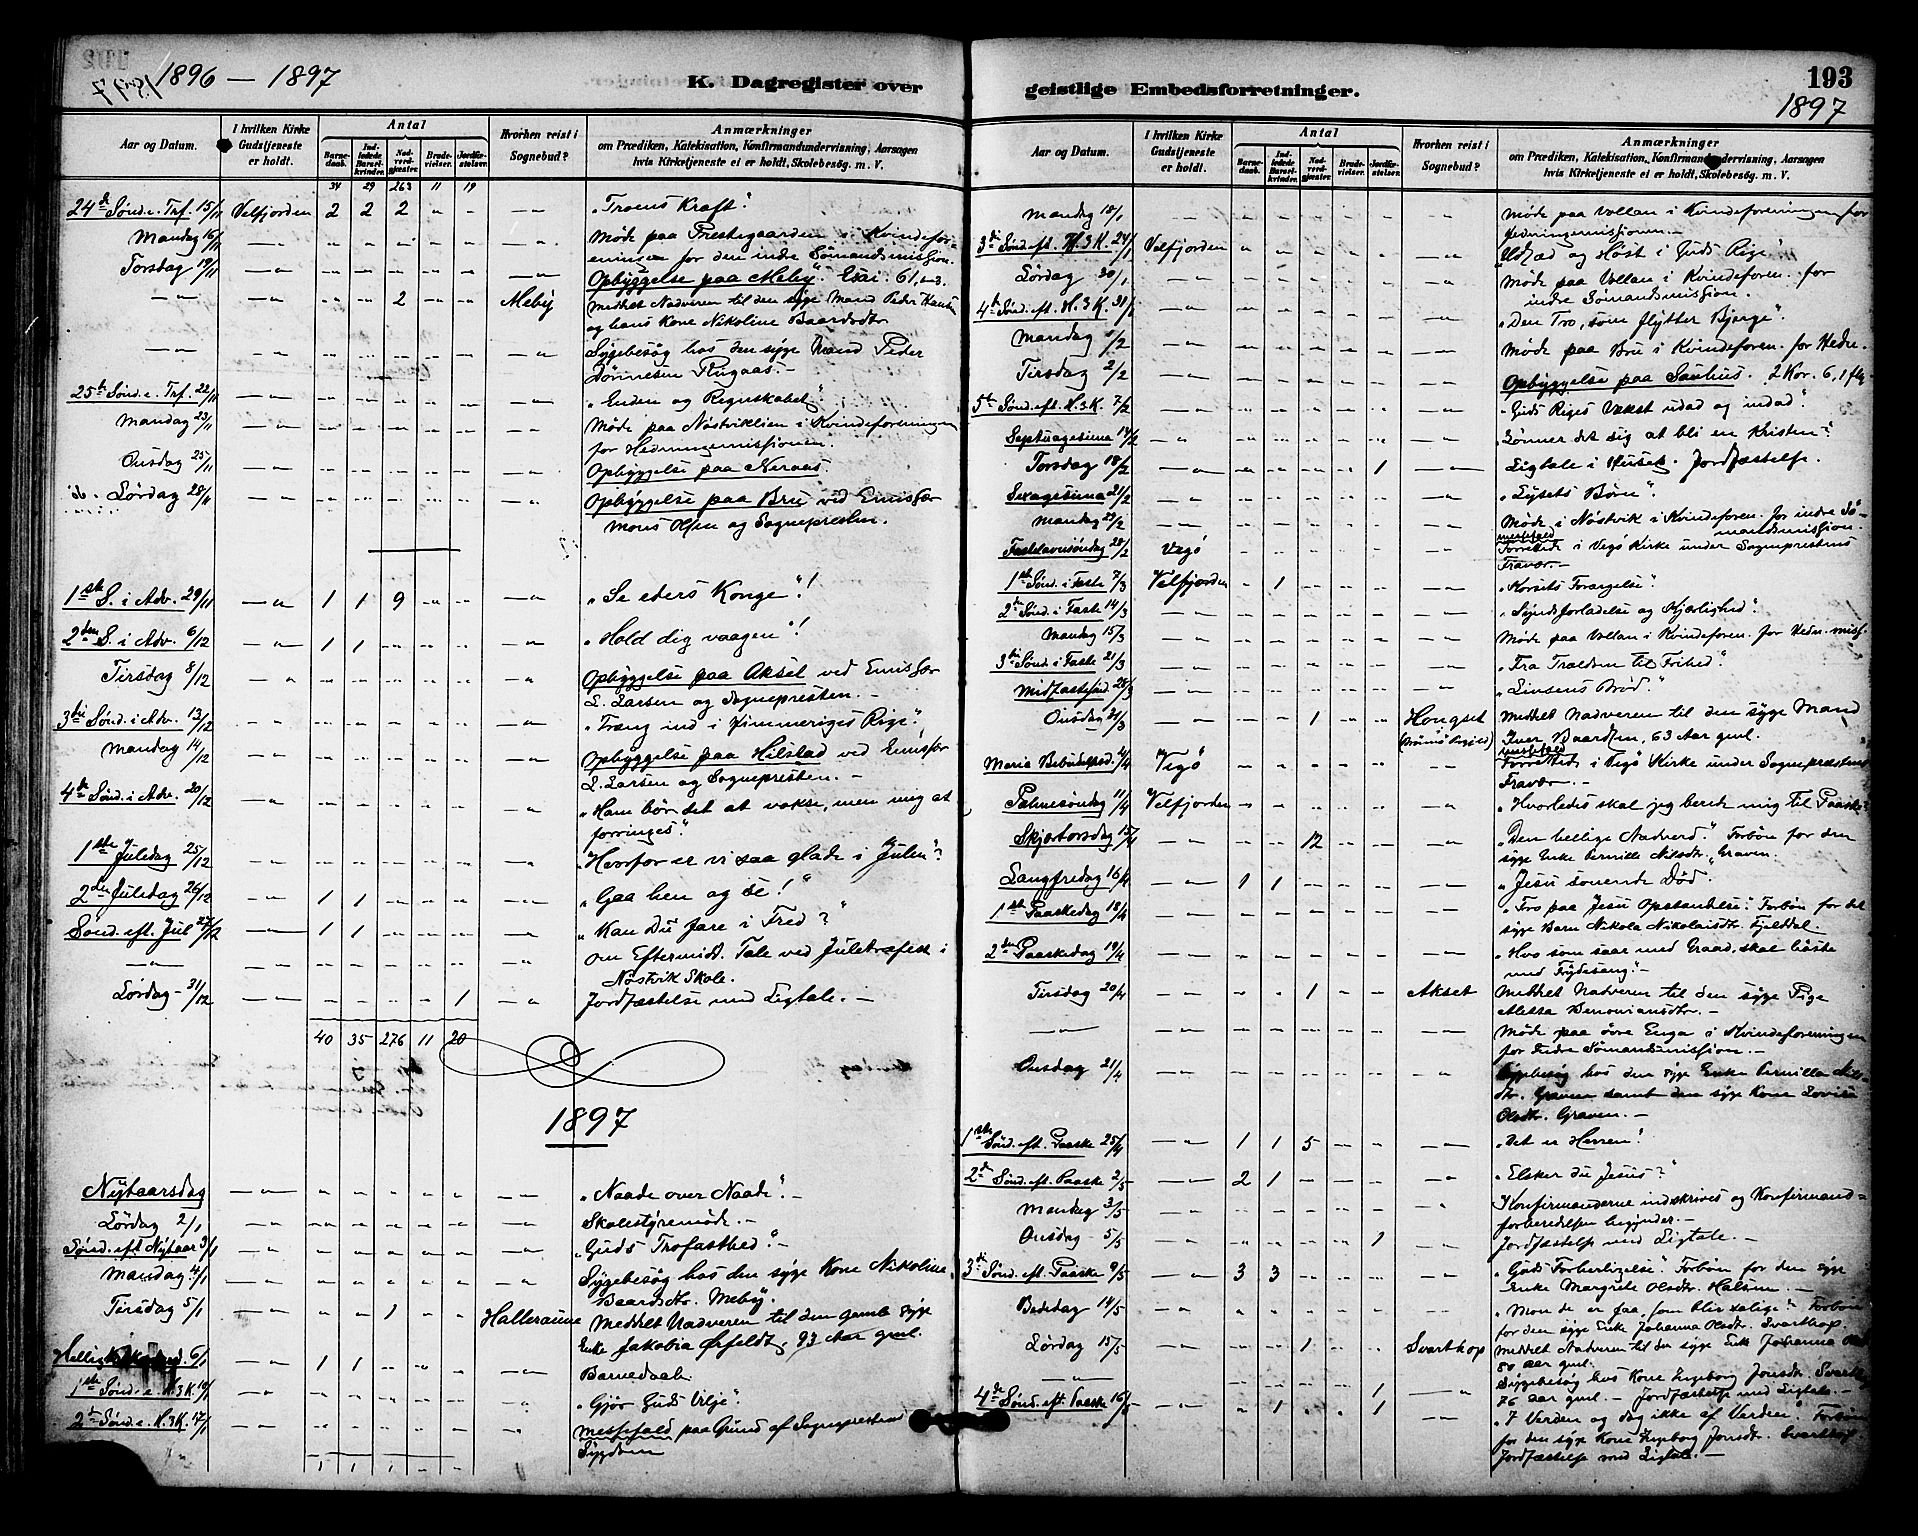 1896 – 1897
K. Dagregister over
Aar og Datum. I hvilken Kirke Gudstjeneste er holdt. Antal Barnedaab. Indledede Barselkvinder. Nadverdgjæster. Brudevielser. Jordfæstelser. Hvorhen reist i Sognebud? Anmærkninger om Prædiken, Katekisation, Konfirmandundervisning, Aarsagen hvis Kirketjeneste ei er holdt, Skolebesøg. m. V.
34 29 263 11 19
24de Sønd. e. Trf. 15/11 Velfjorden 2 2 2 „Troens Kraft“.
Mandag 16/11 Møde paa Prestegaarden i Kvindefor-
eningen for den indre Sømandsmission.
Torsdag 19/11 Opbyggelse paa Meby. Esai. 61,1-3.
2 Meby Meddelt Nadveren til den syge Mand Peder Hansen
og hans Kone Nikoline Baardsdtr.
Sygebesøg hos den syge Mand Peder
Dønnesen Rugaas.
25de Sønd. e. Trf. 22/11 „Enden og Regnskabet“.
Mandag 23/11 Møde paa Nøstviklien i Kvindeforeningen
for Hedningemissionen.
Onsdag 25/11 Opbyggelse paa Nernes.
Lørdag 28/11 Opbyggelse paa Bru ved Emissær
Mons Olsen og Sognepresten.
1ste S. i Adv. 29/11 1 1 9 „Se eders Konge“!
2den S. i Adv. 6/12 1 1 „Hold dig vaagen“!
Tirsdag 8/12 Opbyggelse paa Aksel ved Emissær
L. Larsen og Sognepresten.
3die Sønd. i Adv. 13/12 „Træng ind i Himmeriges Rige“.
Mandag 14/12 Opbyggelse paa Hilstad ved Emissær
L. Larsen og Sognepresten.
4de Sønd. i Adv. 20/12 „Ham bør det at vokse, men mig at
forringes“.
1ste Juledag 25/12 „Hvorfor er vi saa glade i Julen“?
2den Juledag 26/12 1 1 „Gaa hen og se!“
Sønd. eft. Jul 27/12 1 1 „Kan Du fare i Fred?“
om Eftermidt. Tale ved Juletræfest i
Nøstvik Skole.
Lørdag 31/12 1 Jordfæstelse med Ligtale.
40 35 276 11 20
1897
Nytaarsdag „Naade over Naade“.
Lørdag 2/1 Skolestyremøde.
Sønd. eft. Nytaar 3/1 „Guds Trofasthed“.
Mandag 4/1 Sygebesøg hos den syge Kone Nikoline
Baardsdtr. Meby.
Tirsdag 5/1 1 Halleraune Meddelt Nadveren til den gamle syge
Enke Jakobia Ørfeldt, 93 Aar gml.
6/1 1 1 Barnedaab
1ste Sønd. e. H.3.K. 10/1 „Gjør Guds Vilje“.
2den Sønd. e. H.3.K. 17/1 Messefald paa Grund af Sogneprestens
Sygdom
1 1 1
geistlige Embedsforretninger.
193
1897
Aar og Datum. I hvilken Kirke Gudstjeneste er holdt. Antal Barnedaab. Indledede Barselkvinder. Nadverdgjæster. Brudevielser. Jordfæstelser. Hvorhen reist i Sognebud? Anmærkninger om Prædiken, Katekisation, Konfirmandundervisning, Aarsagen hvis Kirketjeneste ei er holdt, Skolebesøg. m. V.
Mandag 18/1 Møde paa Vollan i Kvindeforeningen for
Hedningemissionen.
3die Sønd. eft. H.3.K. 24/1 Velfjorden „Udsæd og Høst i Guds Rige“.
Lørdag 30/1 Møde paa Vollan i Kvindeforen. for
indre Sømandsmission.
4de Sønd. eft. H.3.K. 31/1 „Den Tro, som flytter Bjerge“.
Mandag 1/2 Møde paa Bru i Kvindeforen. for Hedn.
Tirsdag 2/2 Opbyggelse paa Sauhus. 2 Kor. 6,1 flg
5te Sønd. eft. H.3.K. 7/2 „Guds Riges Vækst udad og indad“.
Septuagesima 14/2 „Lønner det sig at bli en Kristen“?
Torsdag 18/2 1 Ligtale i Huset. Jordfæstelse.
Sexagesima 21/2 „Lysets Børn“.
Mandag 22/2 Møde i Nøstvik i Kvindeforen. for indre Sø-
mandsmission.
Fastelavnsøndag 28/2 Vegø Messefald i Vegø Kirke under Sogneprestens
Fravær.
1ste Sønd. i Faste 7/3 Velfjorden 1 „Korsets Forargelse“.
2den Sønd. i Faste 14/3 „Syndsforladelse og Kjærlighed“.
Mandag 15/3 Møde paa Vollan i Kvindeforen. for Hedn. miss.
3die Sønd. i Faste 21/3 „Fra Trældom til Frihed“.
Midfastesønd. 28/3 „Livsens Brød“.
Onsdag 31/3 1 Hongset Meddelt Nadveren til den syge Mand
(Brønø Prgjeld) Iver Baardsen, 63 Aar gml.
Maria Bebudelsesd. 4/4 Vegø Messefald i Vegø Kirke under Sogneprestens
Fravær.
Palmesøndag 11/4 Velfjorden „Hvorledes skal jeg berede mig til Paaske?
Skjærtorsdag 15/4 12 „Den hellige Nadverd“. Forbøn for den
syge Enke Pernille Nilsdtr. Graven.
Langfredag 16/4 1 1 „Jesu sonende Død“.
1ste Paaskedag 18/4 „Tro paa Jesu Opstandelse“. Forbøn for det
syge Barn Nikola Nikolaisdtr. Fjelddal.
2den Paaskedag 19/4 „Hvo som saar med Graad, skal høste
med Frydesang“.
Tirsdag 20/4 1 Akset Meddelt Nadveren til den syge Pige
Aletta Benoniansdtr.
Møde paa øvre Enga i Kvindeforeningen
for Indre Sømandsmission.
Onsdag 21/4 Sygebesøg hos den syge Enke Pernille Nils-
dtr. Graven samt den syge Kone Lovise
Olsdtr. Graven.
1ste Sønd. eft. Paaske 25/4 1 1 5 „Det er Herren“!
2den Sønd. eft. Paaske 2/5 2 1 „Elsker du Jesus?“
Mandag 3/5 Konfirmanderne indskrives og Konfirmand-
forberedelsen begynder.
Onsdag 5/5 1 Jordfæstelse med Ligtale.
3die Sønd. eft. Paaske 9/5 3 3 „Guds Forherligelse“. Forbøn for den syge
Enke Margrete Olsdtr. Halsen.
Bededag 14/5 „Mon de er faa, som blir salige“? Forbøn
for den syge Enke Johanna Olsdtr. Svarthop.
Lørdag 15/5 1 Svarthop Meddelt Nadveren til den syge Enke Johanna
80 aar gml.
1 Sygebesøg hos Kone Ingeborg Jonsdtr. Svarthop
76 aar gml – Jordfæstelse med Ligtale.
4de Sønd. eft. Paaske 16/5 1 1 „I Verden og dog ikke af Verden“. Forbøn
for den syge Kone Ingeborg Jonsdtr. Svarthop
Jordfæstelse med Ligtale.